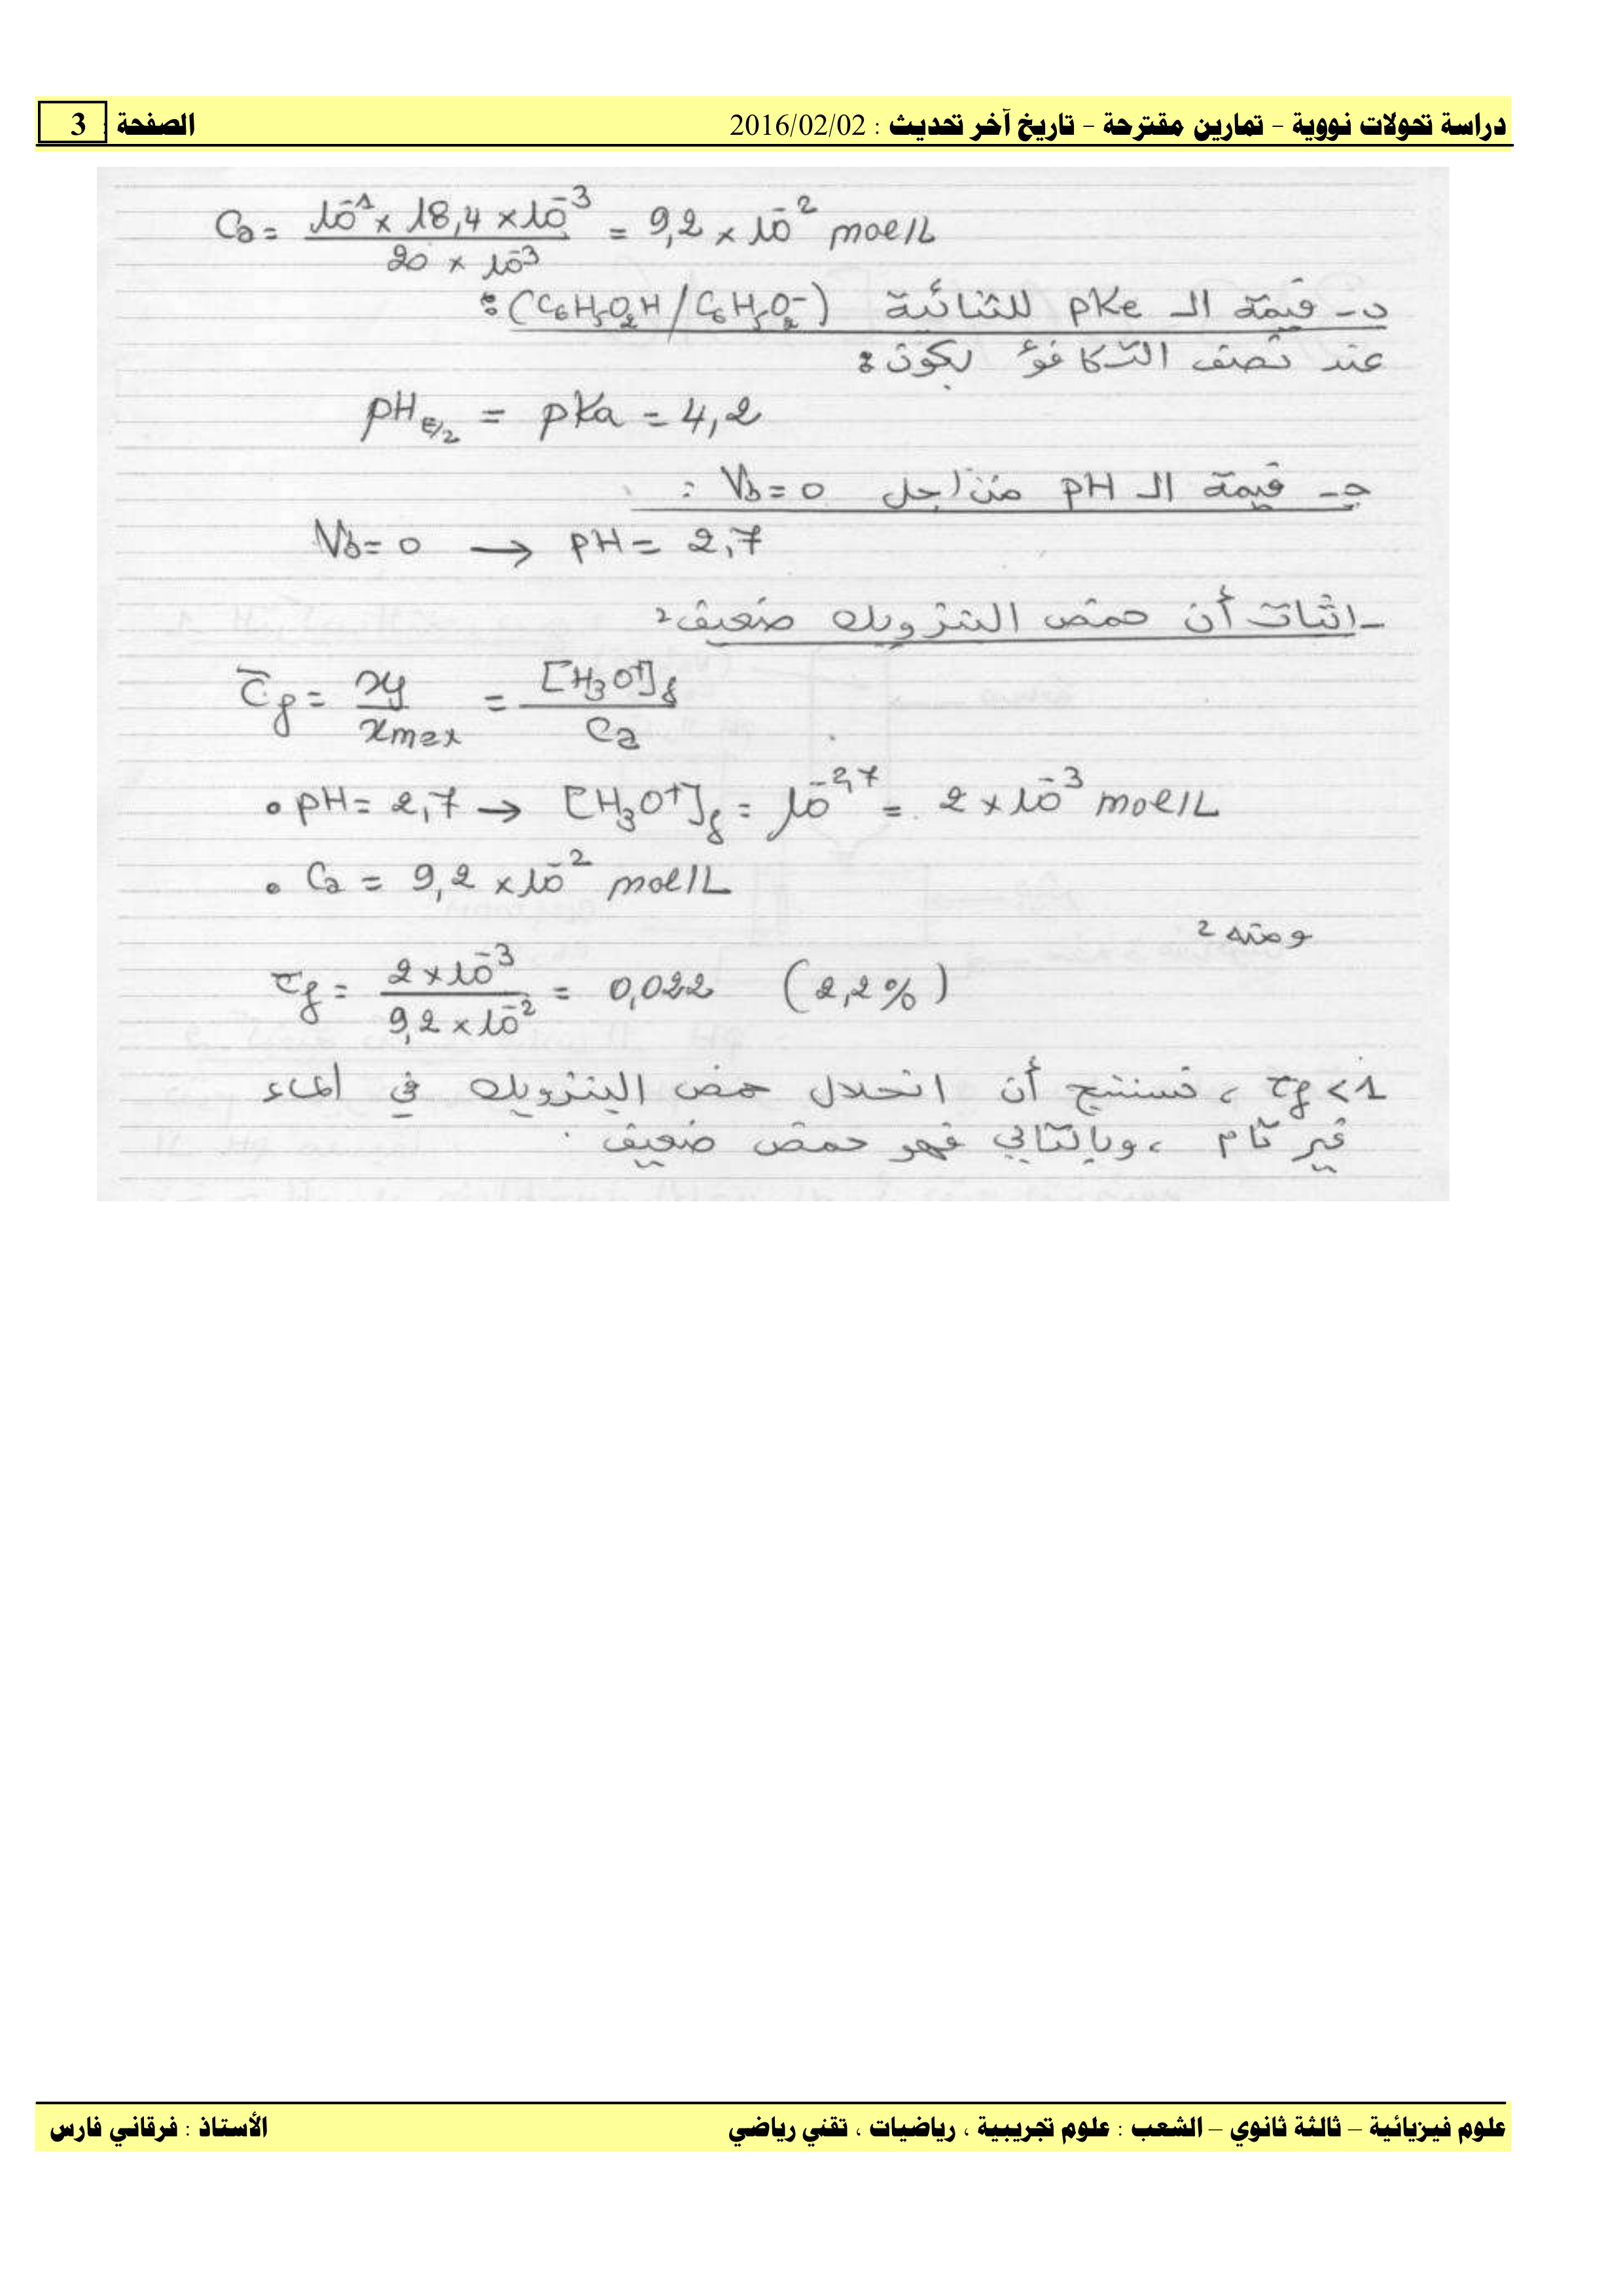 دراسة تحولات نووية – تمارين مقترحة – تاريخ آخر تحديث : 2016/02/02 الصفحة : 3
Ca = (10^-1 × 18,4 × 10^-3) / (20 × 10^-3) = 9,2 × 10^-2 mol/L
د- قيمة الـ pKa للثنائية (C6H5O2H / C6H5O2^-) :
عند نصف التكافؤ يكون :
pH E/2 = pKa = 4,2
جـ- قيمة الـ pH من اجل Vb = 0 :
Vb = 0 → pH = 2,7
- اثبات أن حمض البنزويك ضعيف :
τf = xf / xmax = [H3O+]f / Ca
• pH = 2,7 → [H3O+]f = 10^-2,7 = 2 × 10^-3 mol/L
• Ca = 9,2 × 10^-2 mol/L
و منه :
τf = (2 × 10^-3) / (9,2 × 10^-2) = 0,022 (2,2%)
τf < 1 ، نستنتج أن انحلال حمض البنزويك في الماء
غير تام ، وبالتالي فهو حمض ضعيف .
علوم فيزيائية – ثالثة ثانوي – الشعب : علوم تجريبية ، رياضيات ، تقني رياضي الأستاذ : فرقاني فارس